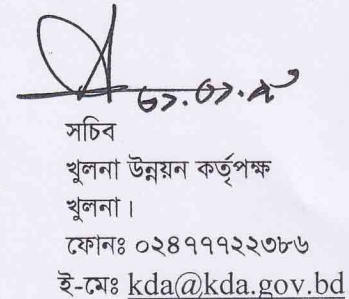 সচিব
খুলনা উন্নয়ন কর্তৃপক্ষ
খুলনা।
ফোনঃ ০২৪৭৭৭২২৩৮৬
ই-মেঃ kda@kda.gov.bd